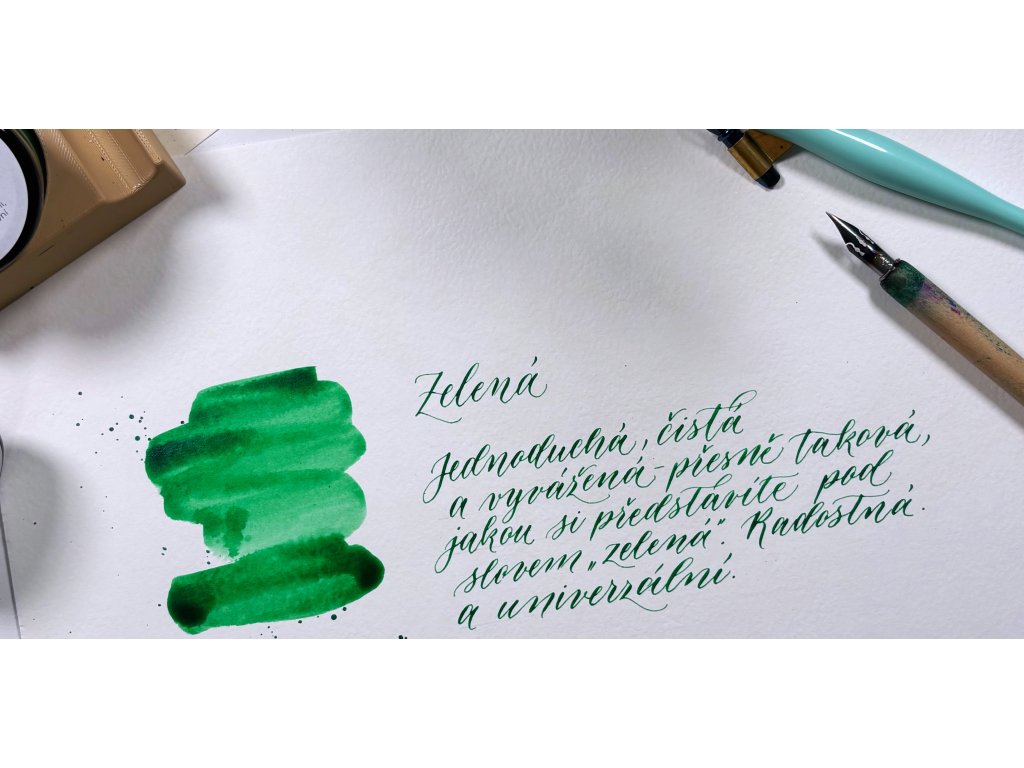 Zelená
Jednoduchá, čistá
a vyvážená - přesně taková,
jakou si představíte pod
slovem „zelená". Radostná.
a univerzální.